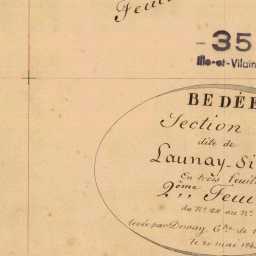 Feui
- 35
Ille-et-Vilain
BEDÉE
Section
dite de
Launay-Si
En trois Feuill
2ème Feui
du N° 28 au N°
levée par Demay, G
le 20 mai 18